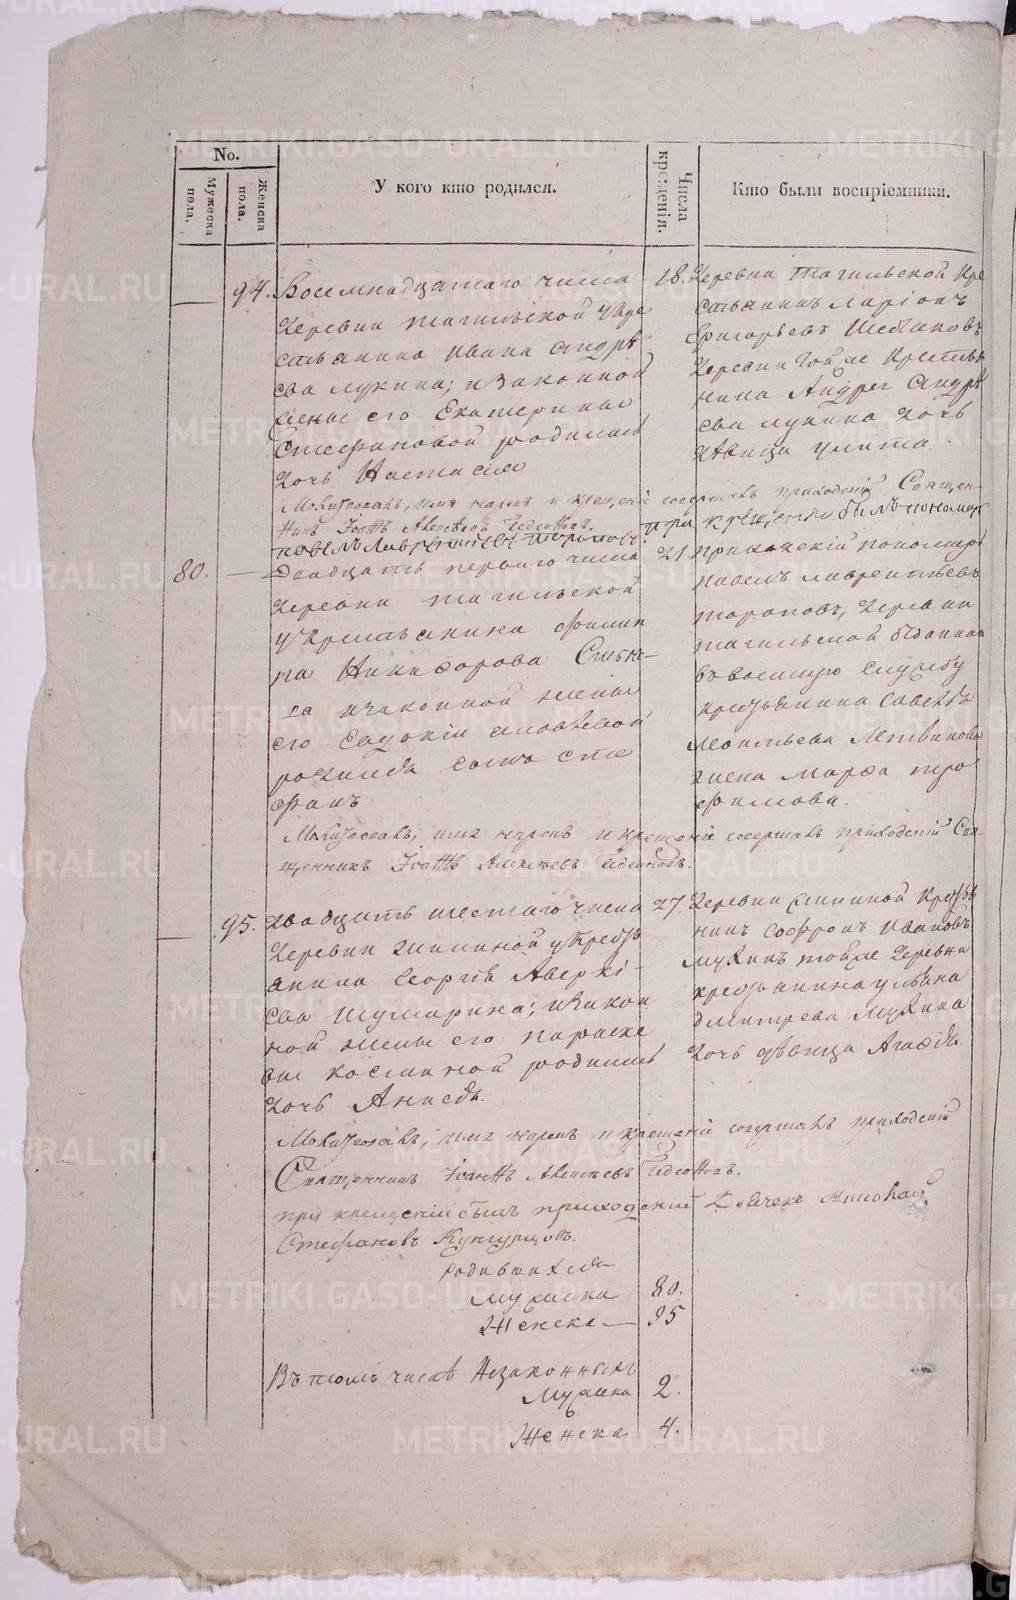 No.
Мужеска пола.
Женска пола.
У кого кто родился.
Числа крещенія.
Кто были воспріемники.
94. Восемнадцатаго числа
деревни тагильской укре
стьянина Ивана Андрѣ
ева Лукина; изаконной
жены его Екатерины
Стефановой родилась
дочь Настасия
18. деревни тагильской кре
стьянинъ Ларіонъ
Григорьевъ
деревни тойже крестья
нина Андрея Андрѣ
ева Лукина дочь
дѣвица Улита.
Молитвовалъ, имя нарекъ и крещеніе совершалъ приходскій Священ-
никъ Іоаннъ Алексѣевъ Гедеоновъ. при крещеніи былъ пономарь
павелъ лаврентьевъ тороповъ
80. Двадцать перваго числа
деревни тагильской
укрестьянина Филип
па Никифорова
изаконной жены
его Евдокіи
родился сынъ Сте
фанъ
21. приходскій пономарь
павелъ лаврентьевъ
тороповъ, деревни
тагильской
въвоенную службу
крестьянина Савелья
Литвинова
жена Марфа тро
фимова.
Молитвовалъ, имя нарекъ и крещеніе совершалъ приходскій Свя-
щенникъ Іоаннъ Алексѣевъ Гедеоновъ.
95. двадцать шестаго числа
деревни укресть
янина Георгія Аверкі-
ева Шумарина; изакон
ной жены его параске
вы космыной родилась
дочь Анисья.
27. деревни крестья
нинъ Софронъ Ивановъ
Мухинъ тойже деревни
крестьянина ульяна
дмитрева Мухина
дочь дѣвица Агафья
Молитвовалъ, имя нарекъ и крещеніе совершалъ приходскій
Священникъ Іоаннъ Алексѣевъ Гедеоновъ.
при крещеніи былъ приходскій Дьячекъ Николай
Стефановъ Кунгурцовъ.
родившихся
мужеска 80.
Женска 95
Въ томъ числѣ Незаконныхъ
Мужеска 2.
Женска 4.
METRIKI.GASO-URAL.RU